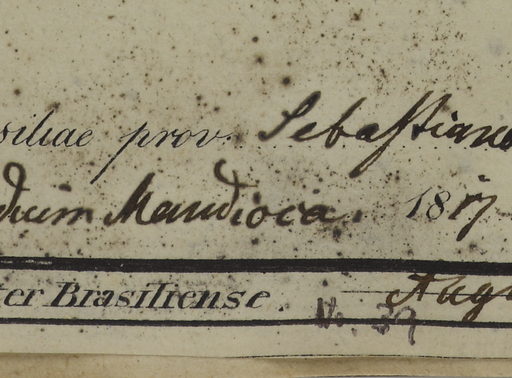 siliae prov. Sebastiano
dium Mandioca. 1817
ter Brasiliense. Aug
No. 39